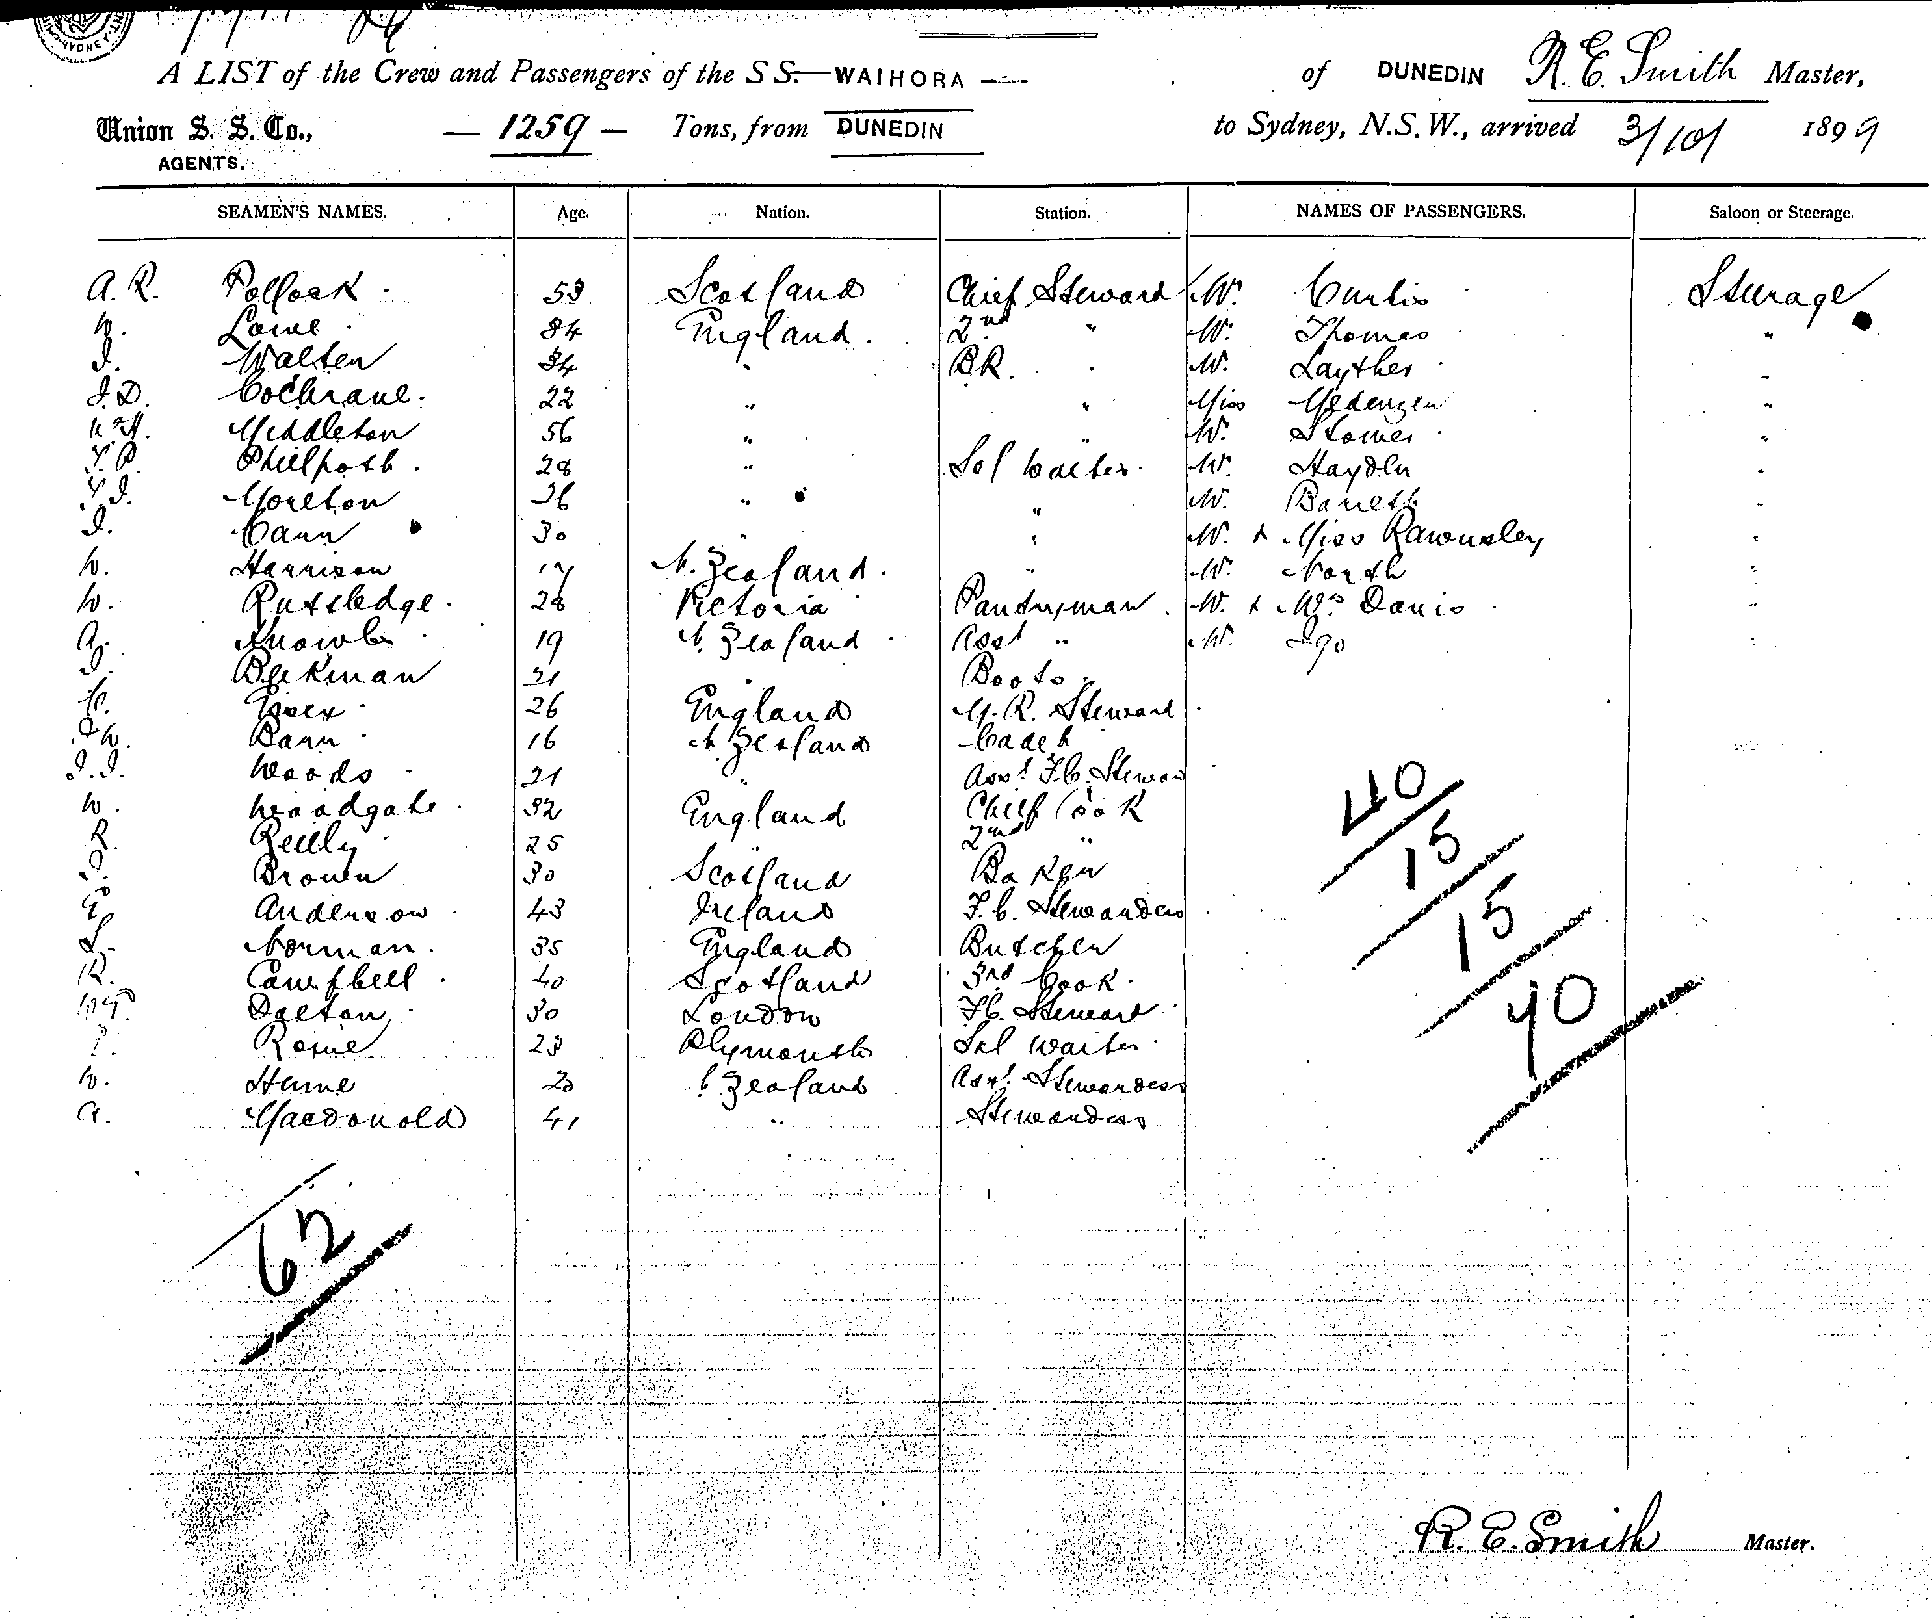 A LIST of the Crew and Passengers of the S S. WAIHORA of DUNEDIN R. E. Smith Master,
Union S. S. Co., — 1259 — Tons, from DUNEDIN to Sydney, N.S.W., arrived 3/10/ 1899
AGENTS.
SEAMEN'S NAMES. Age. Nation. Station. NAMES OF PASSENGERS. Saloon or Steerage.
A. R. Pollock 53 Scotland Chief Steward Mr. Curtis Steerage
W. Lowe 34 England 2nd " Mr. Thomas "
J. Walter 34 " B.R. " Mr. Layther "
J. D. Cochrane 22 " " Miss "
Middleton 56 " " Mr. "
Philpott 28 " Sal Waiter Mr. Hayden "
Moreton 26 " " Mr. Barrett "
J. Cann 30 " " Mr. & Miss Rawnsley "
W. Harrison N. Zealand " Mr. North "
W. Rutledge 28 Victoria Pantryman Mr. & Mrs Davis "
A. Knowles 19 N. Zealand Asst " Mr. Igo "
J. Beekman 21 " Boots
Essex 26 England M. R. Steward
Bann 16 N. Zealand Cadet
J. J. Woods 21 " Asst F.C. Steward
W. Woodgate 32 England Chief Cook
R. Reilly 25 " 2nd "
J. Brown 30 Scotland Baker
E. Anderson 43 Ireland F.C. Stewardess
L. Norman 35 England Butcher
R. Campbell 40 Scotland 3rd Cook
Dalton 30 London F.C. Steward
23 Plymouth Sal Waiter
W. Hume 20 N. Zealand Asst. Stewardess
A. Macdonald 41 " Stewardess
40
15
15
40
62
R. E. Smith Master.